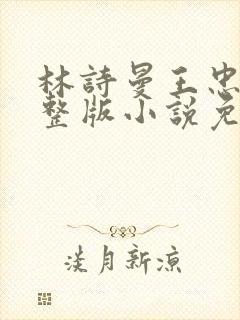 林詩曼王忠
整版小說免
淡月新涼